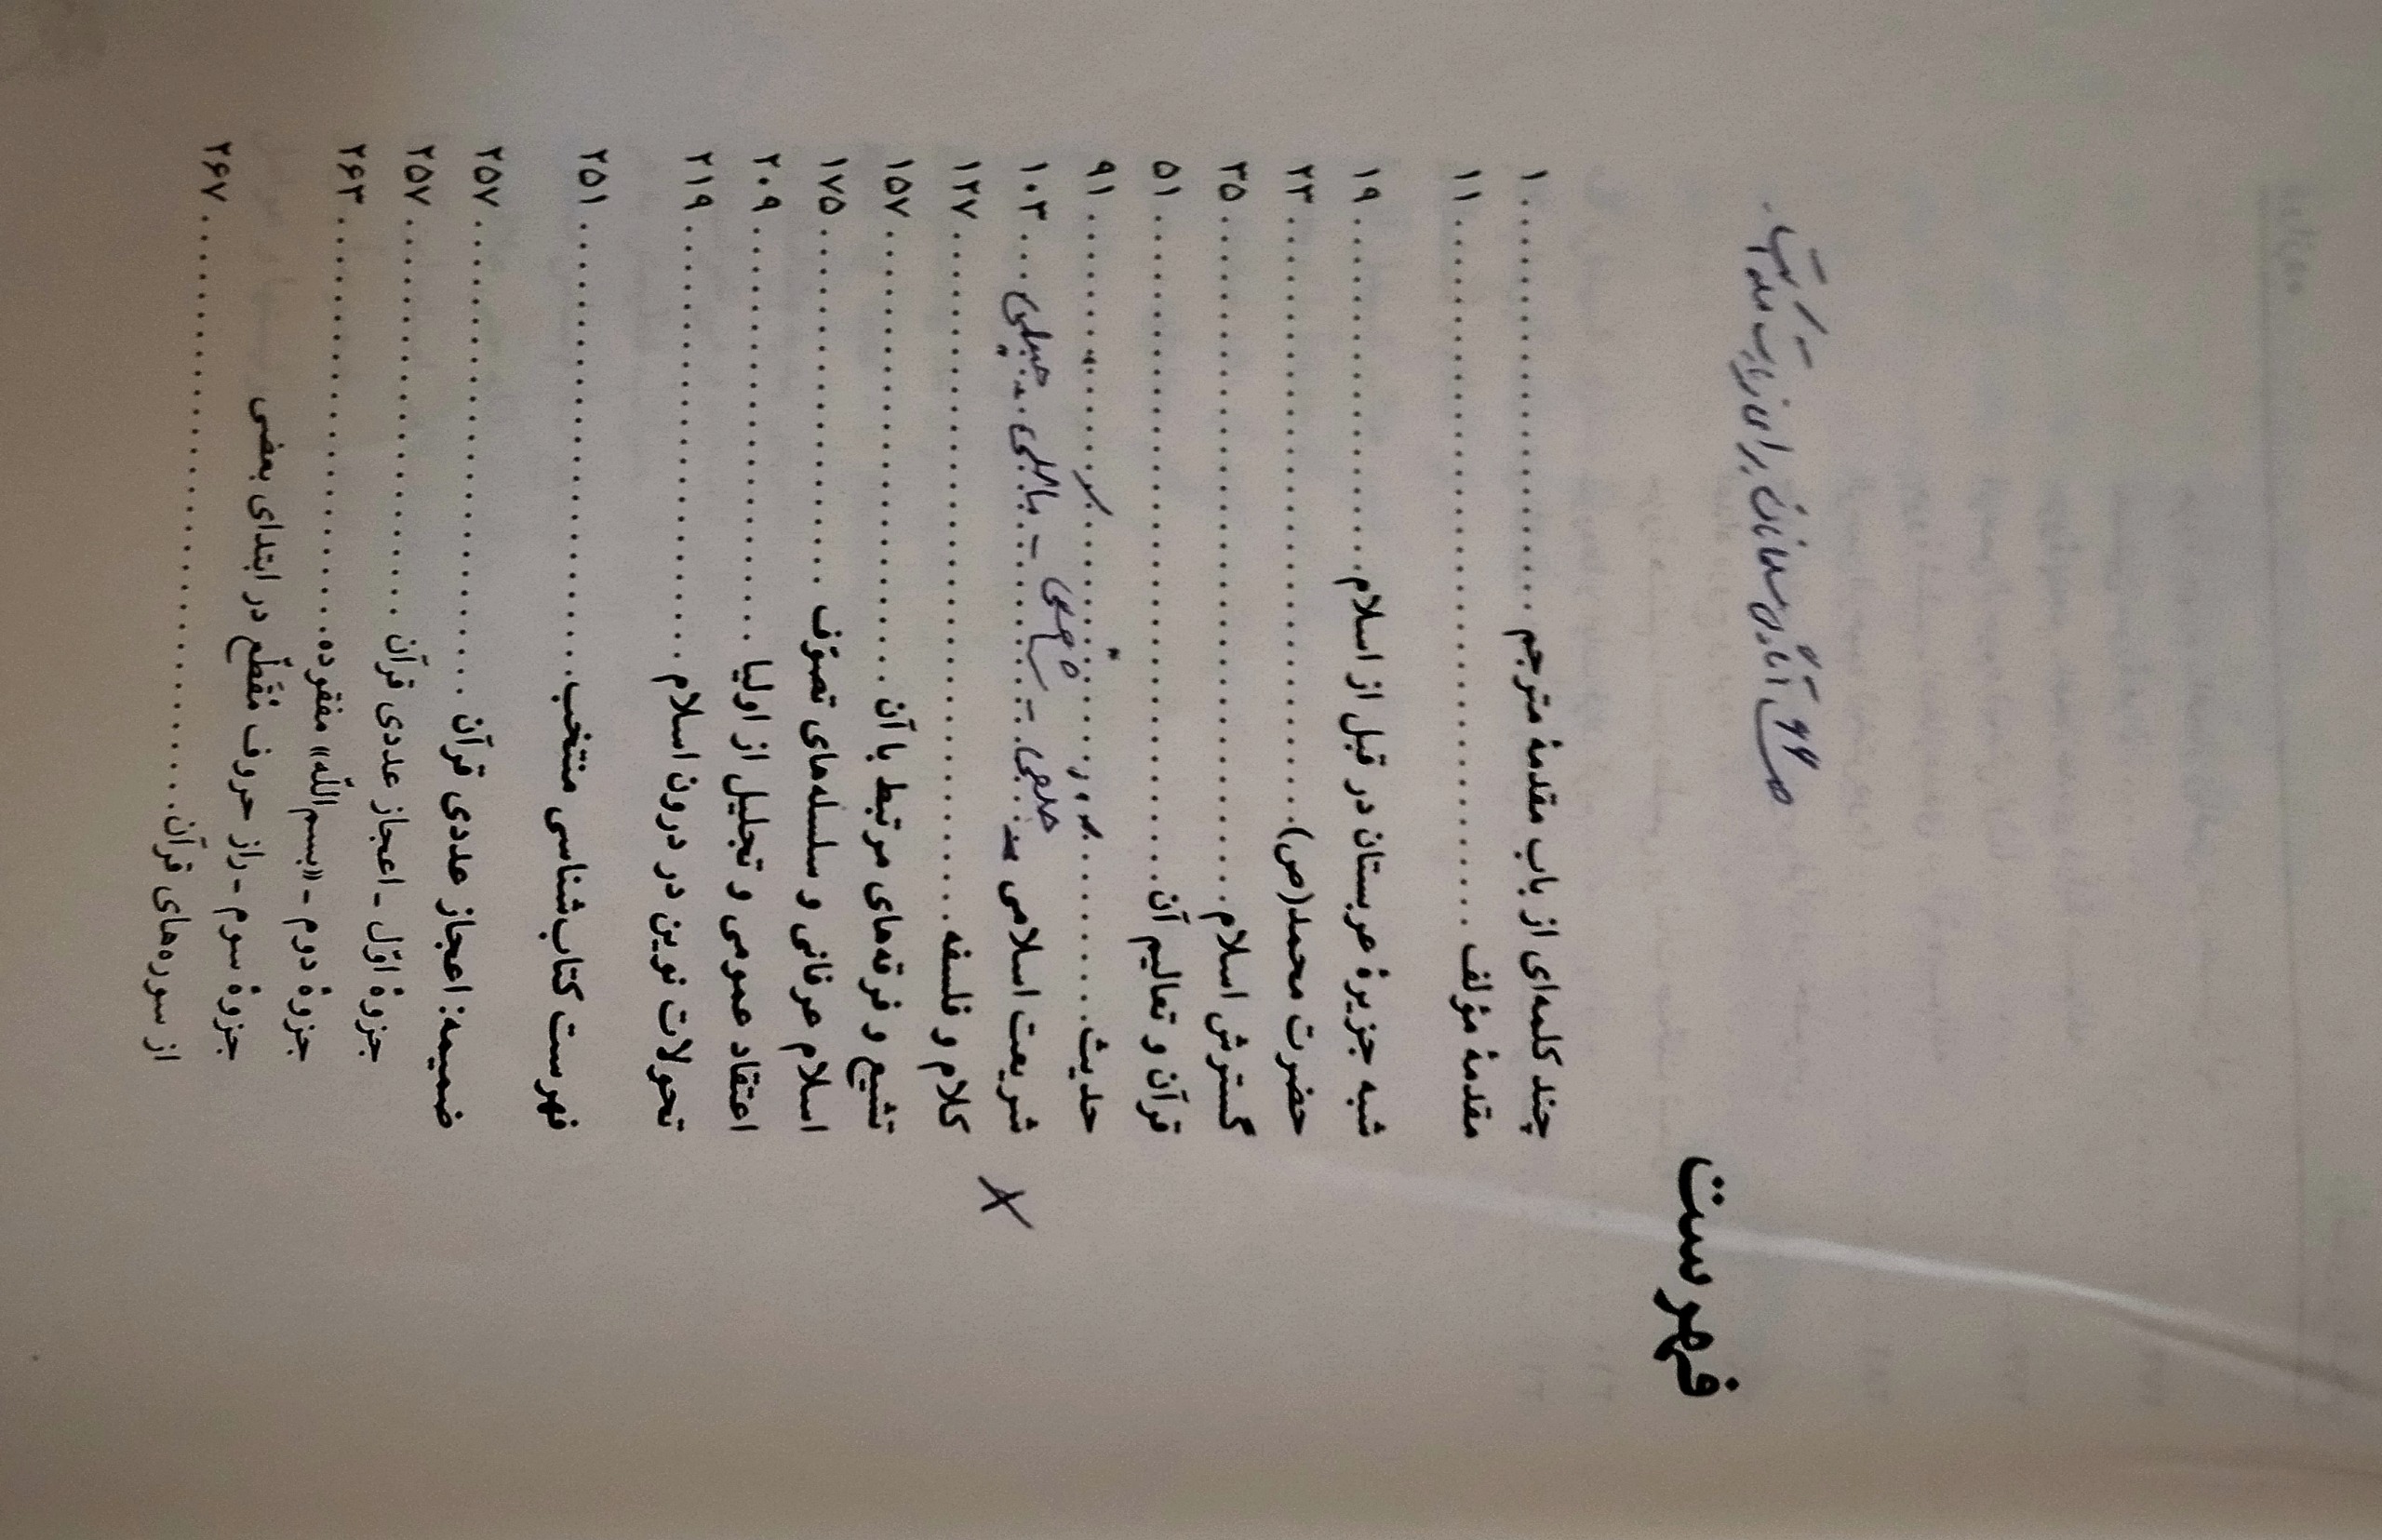 فهرست
چند کلمه‌ای از باب مقدمهٔ مترجم . . . . . . . . . . ۱
مقدمهٔ مؤلف . . . . . . . . . . ۱۱
شبه جزیرهٔ عربستان در قبل از اسلام . . . . . . . . . . ۱۹
حضرت محمد(ص) . . . . . . . . . . ۲۳
گسترش اسلام . . . . . . . . . . ۳۵
قرآن و تعالیم آن . . . . . . . . . . ۵۱
حدیث . . . . . . . . . . ۹۱
شریعت اسلامی . . . . . . . . . . ۱۰۳
کلام و فلسفه . . . . . . . . . . ۱۲۷
تشیع و فرقه‌های مرتبط با آن . . . . . . . . . . ۱۵۷
اسلام عرفانی و سلسله‌های تصوّف . . . . . . . . . . ۱۷۵
اعتقاد عمومی و تجلیل از اولیا . . . . . . . . . . ۲۰۹
تحولات نوین در درون اسلام . . . . . . . . . . ۲۱۹
فهرست کتاب‌شناسی منتخب . . . . . . . . . . ۲۵۱
ضمیمه: اعجاز عددی قرآن . . . . . . . . . . ۲۵۷
جزوهٔ اوّل - اعجاز عددی قرآن . . . . . . . . . . ۲۵۷
جزوهٔ دوم - «بسم‌اللّه» مفقوده . . . . . . . . . . ۲۶۳
جزوهٔ سوم - راز حروف مُقَطّع در ابتدای بعضی
از سوره‌های قرآن . . . . . . . . . . ۲۶۷